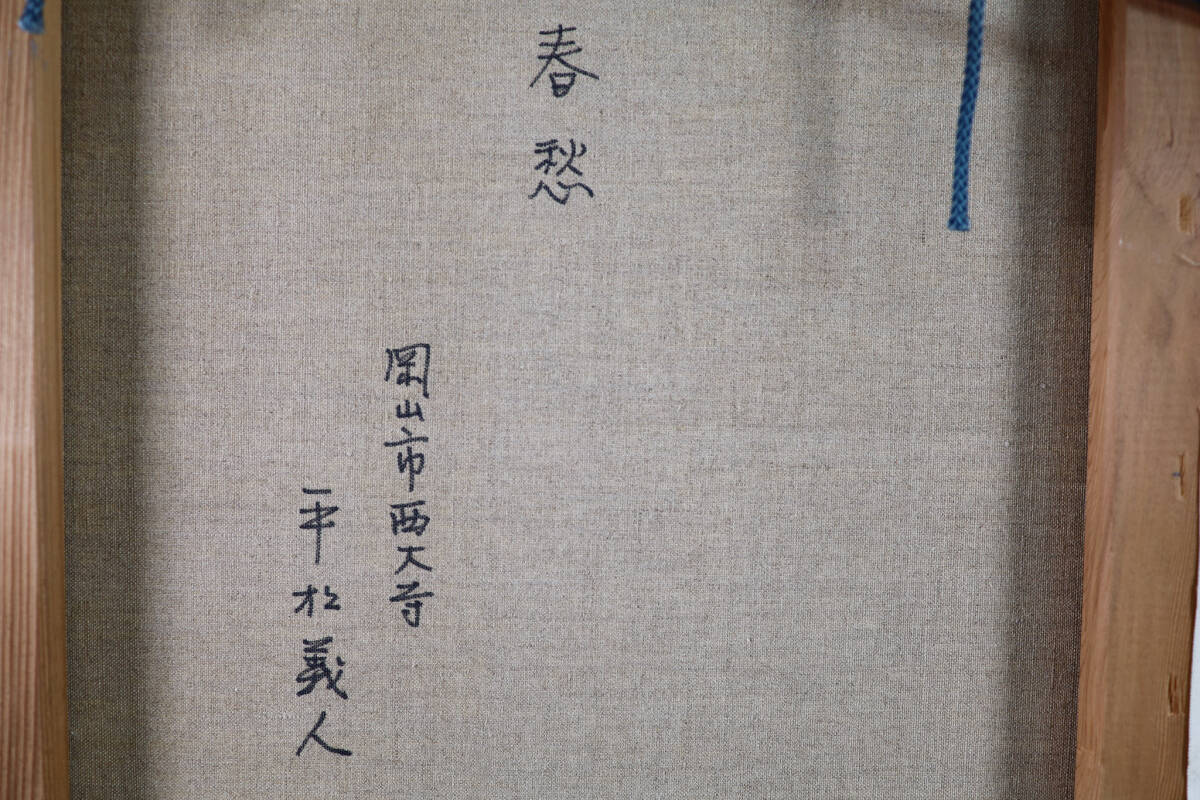 春愁
岡山市西大寺
平松義人